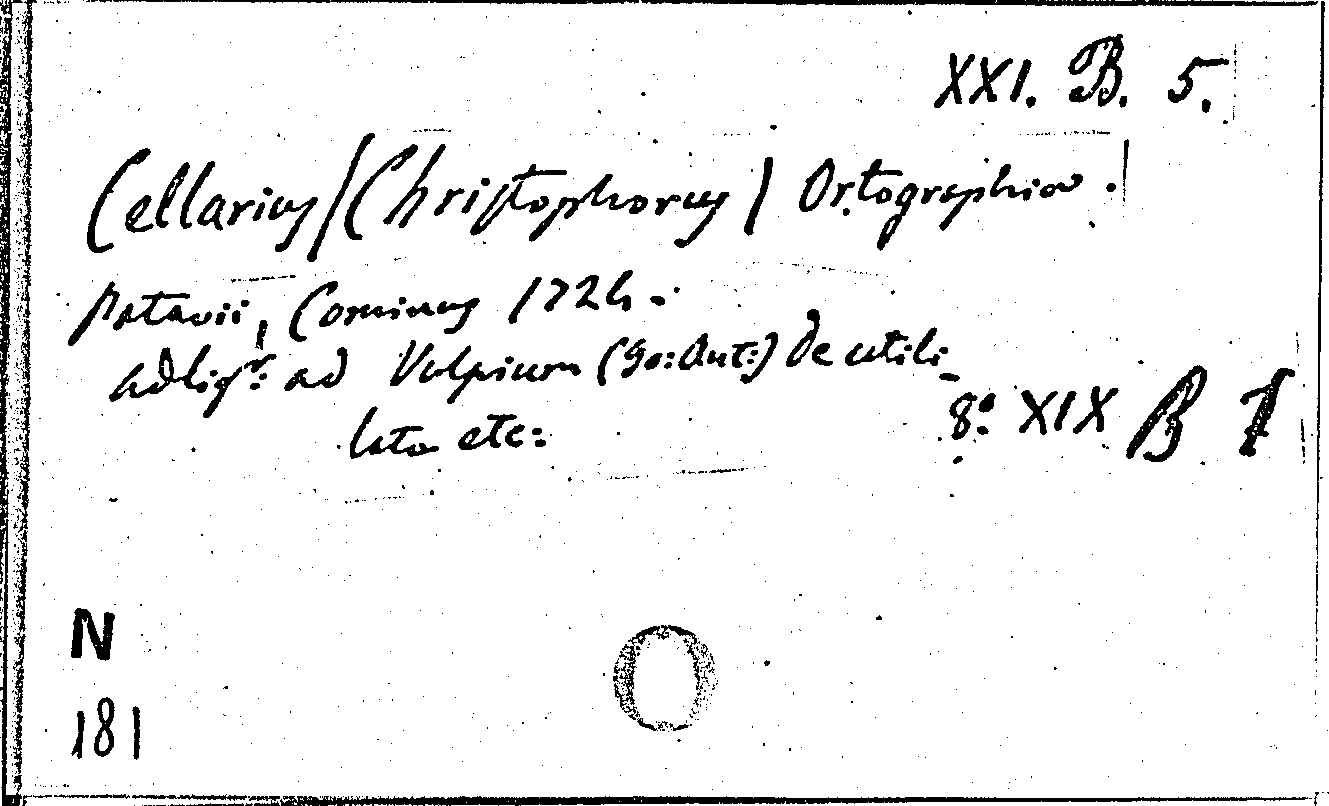 XXI. B. 5.
Cellarius/Christophorus/ Ortographia.
Patavii, Cominus 1724.
adligr: ad Vulpium (Jo: Ant:) De utili_
tate etc:
8º XIX B
N
181